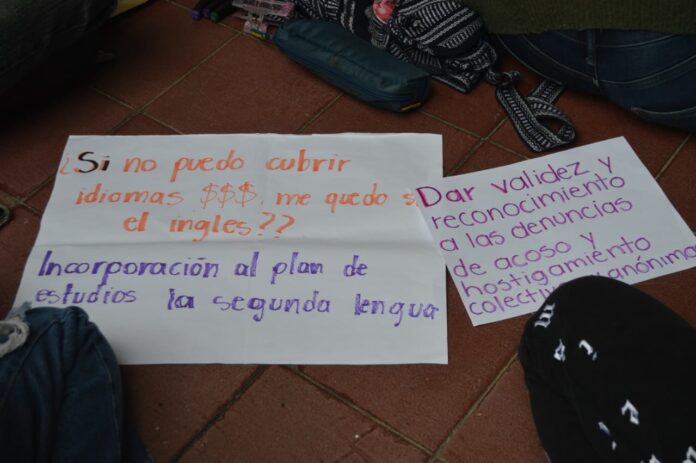 ¿Si no puedo cubrir
idiomas $$$, me quedo
el ingles??
Incorporación al plan de
estudios la segunda lengua
Dar validez y
reconocimiento
a las denuncias
de acoso y
hostigamiento